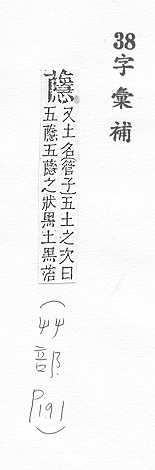 38字彙補
蘟
又土名管子五土之次曰
五蘟五蘟之狀黑土黑菭
(艸部P191)